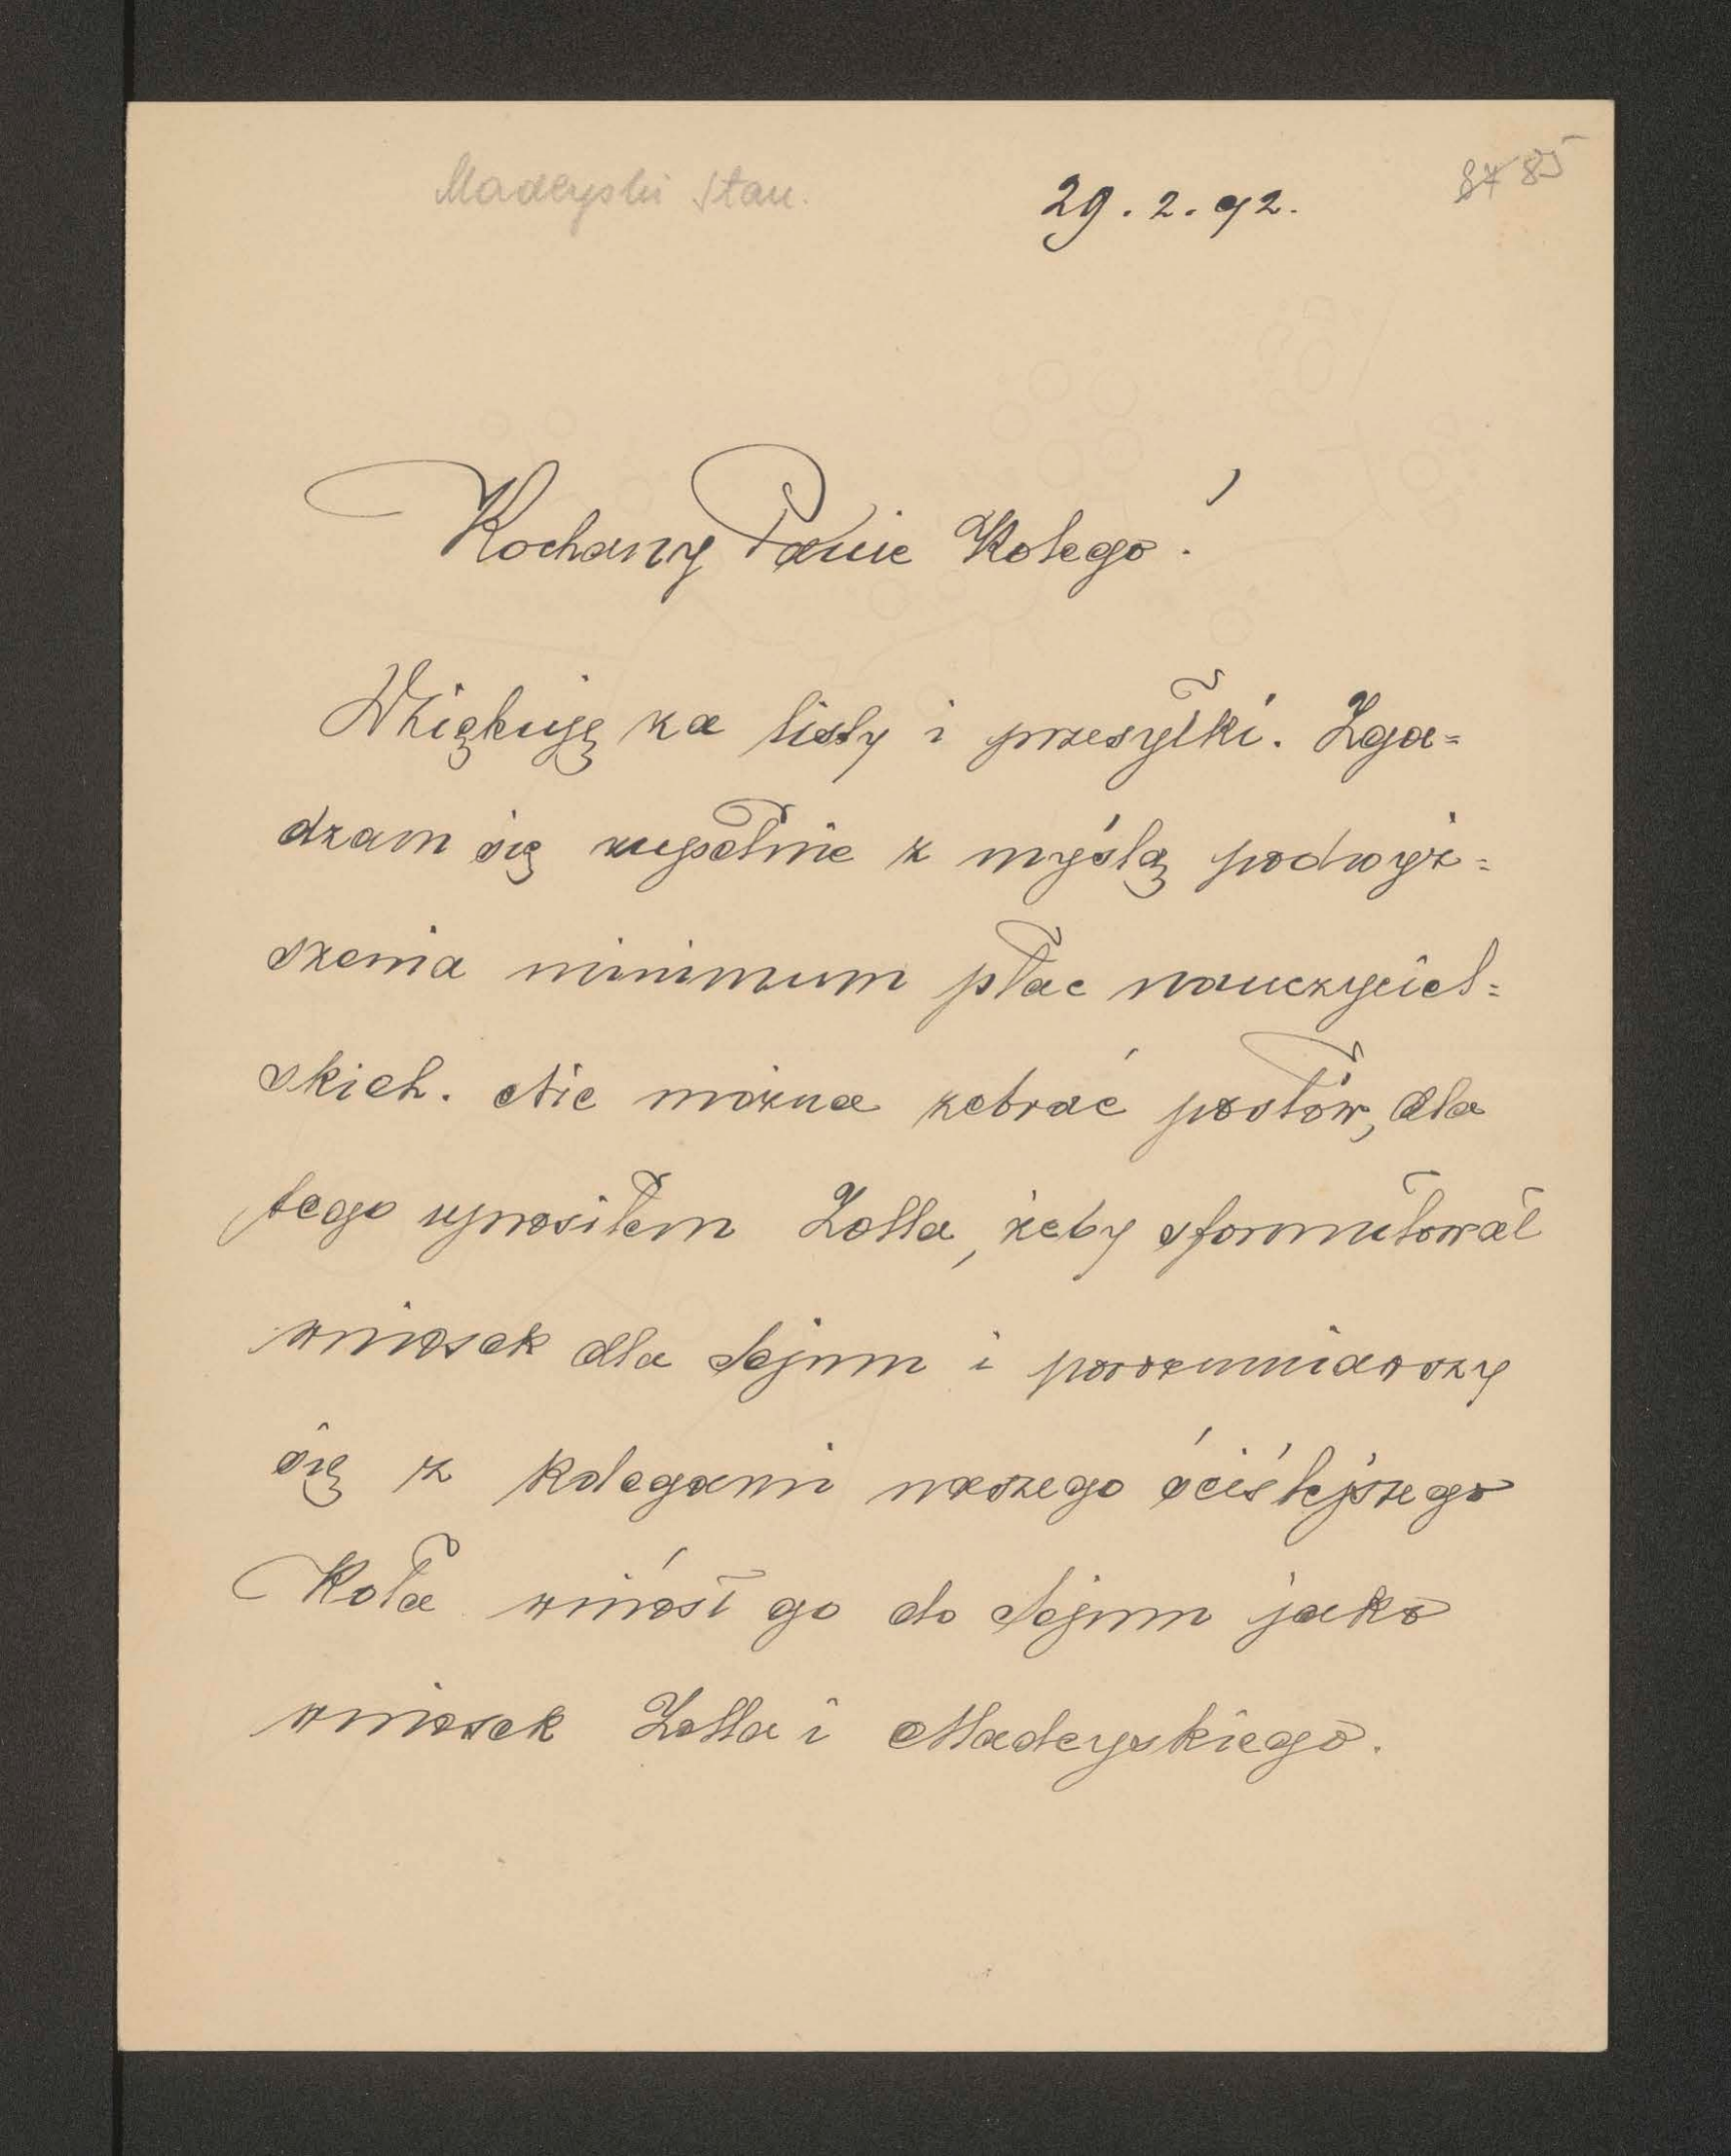 Madeyski Stan.
29.2.92.
84 85
Kochany Panie Kolego!
Dziękuję za listy i przesyłki. Zga=
dzam się zupełnie z myślą podwyż=
szenia minimum płac nauczyciel=
skich. Nie można zebrać posłów, dla
tego uprosiłem Zolla, żeby sformułował
wniosek dla Sejmu i porozumiawszy
się z kolegami naszego ściślejszego
Koła wniósł go do Sejmu jako
wniosek Zolla i Madeyskiego.